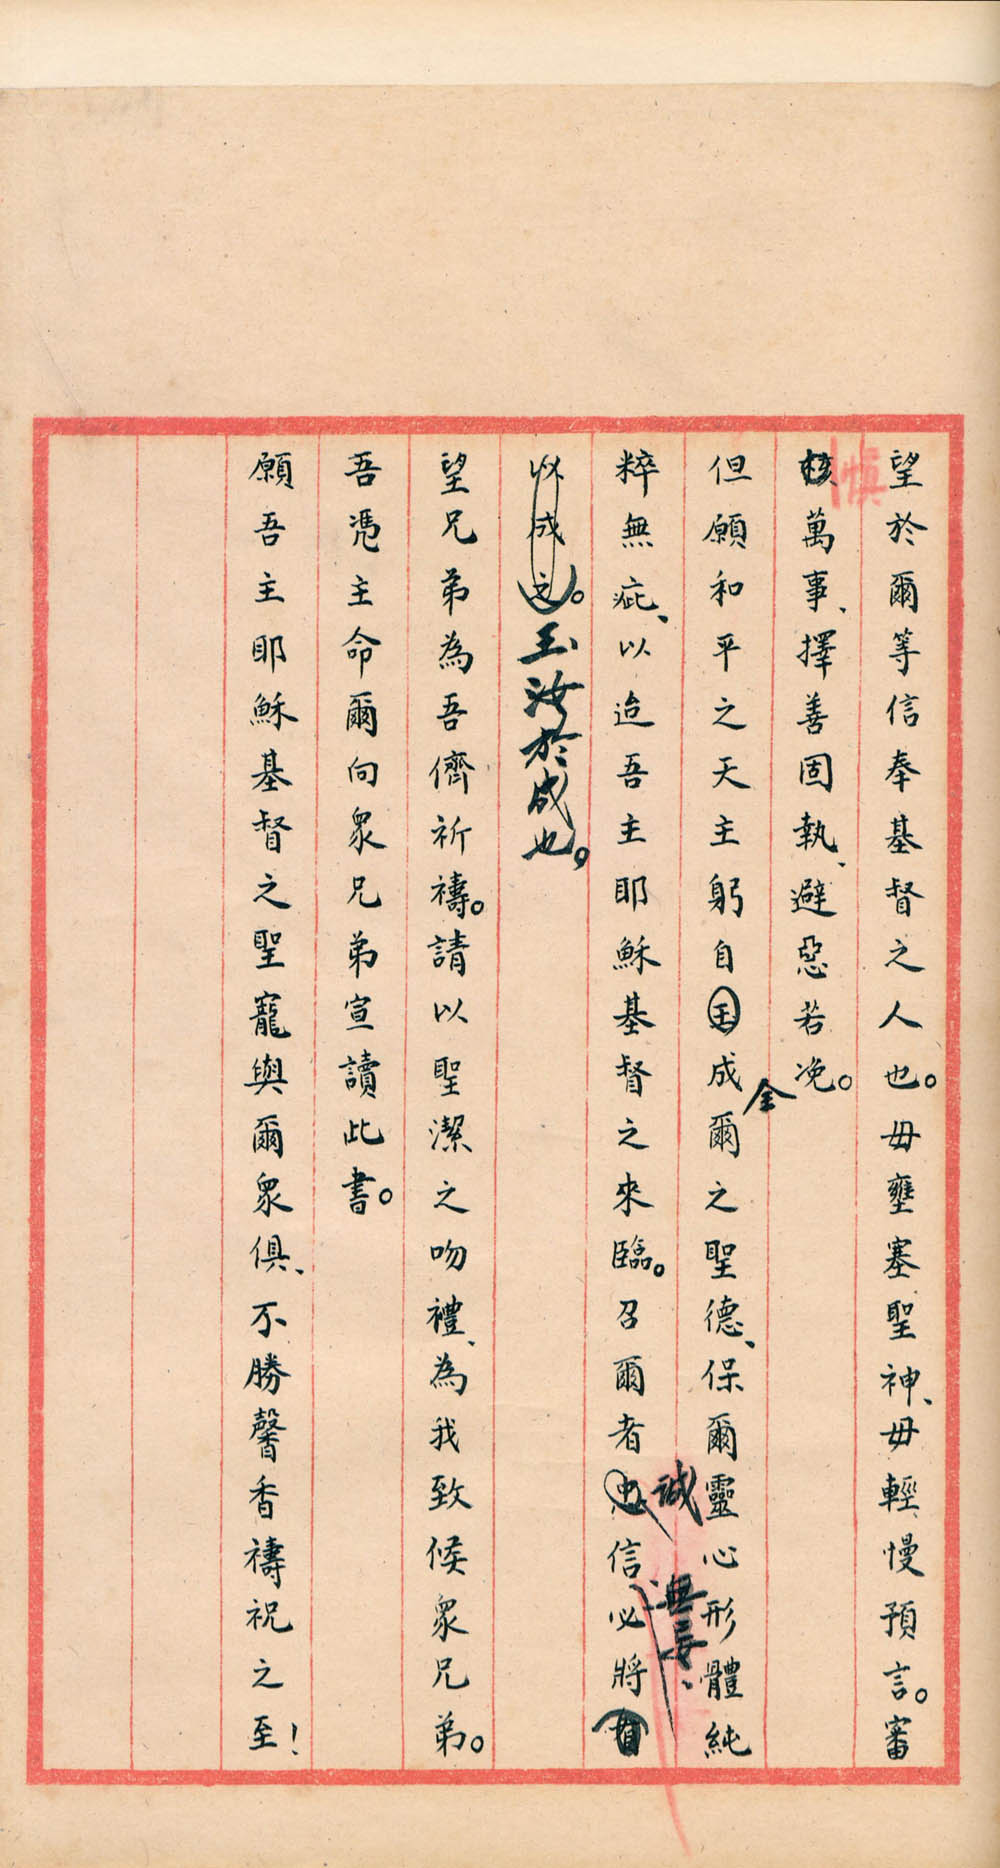 望於爾等信奉基督之人也。毋壅塞聖神、毋輕慢預言。審
慎
核萬事、擇善固執、避惡若浼。
但願和平之天主躬自玉成爾之聖德、保爾靈心形體純
全
粹無疵、以迨吾主耶穌基督之來臨。召爾者忠信必將有
誠
無妄、
以成之。玉汝於成也。
望兄弟為吾儕祈禱。請以聖潔之吻禮、為我致候眾兄弟。
吾憑主命爾向眾兄弟宣讀此書。
願吾主耶穌基督之聖寵與爾眾俱、不勝馨香禱祝之至！